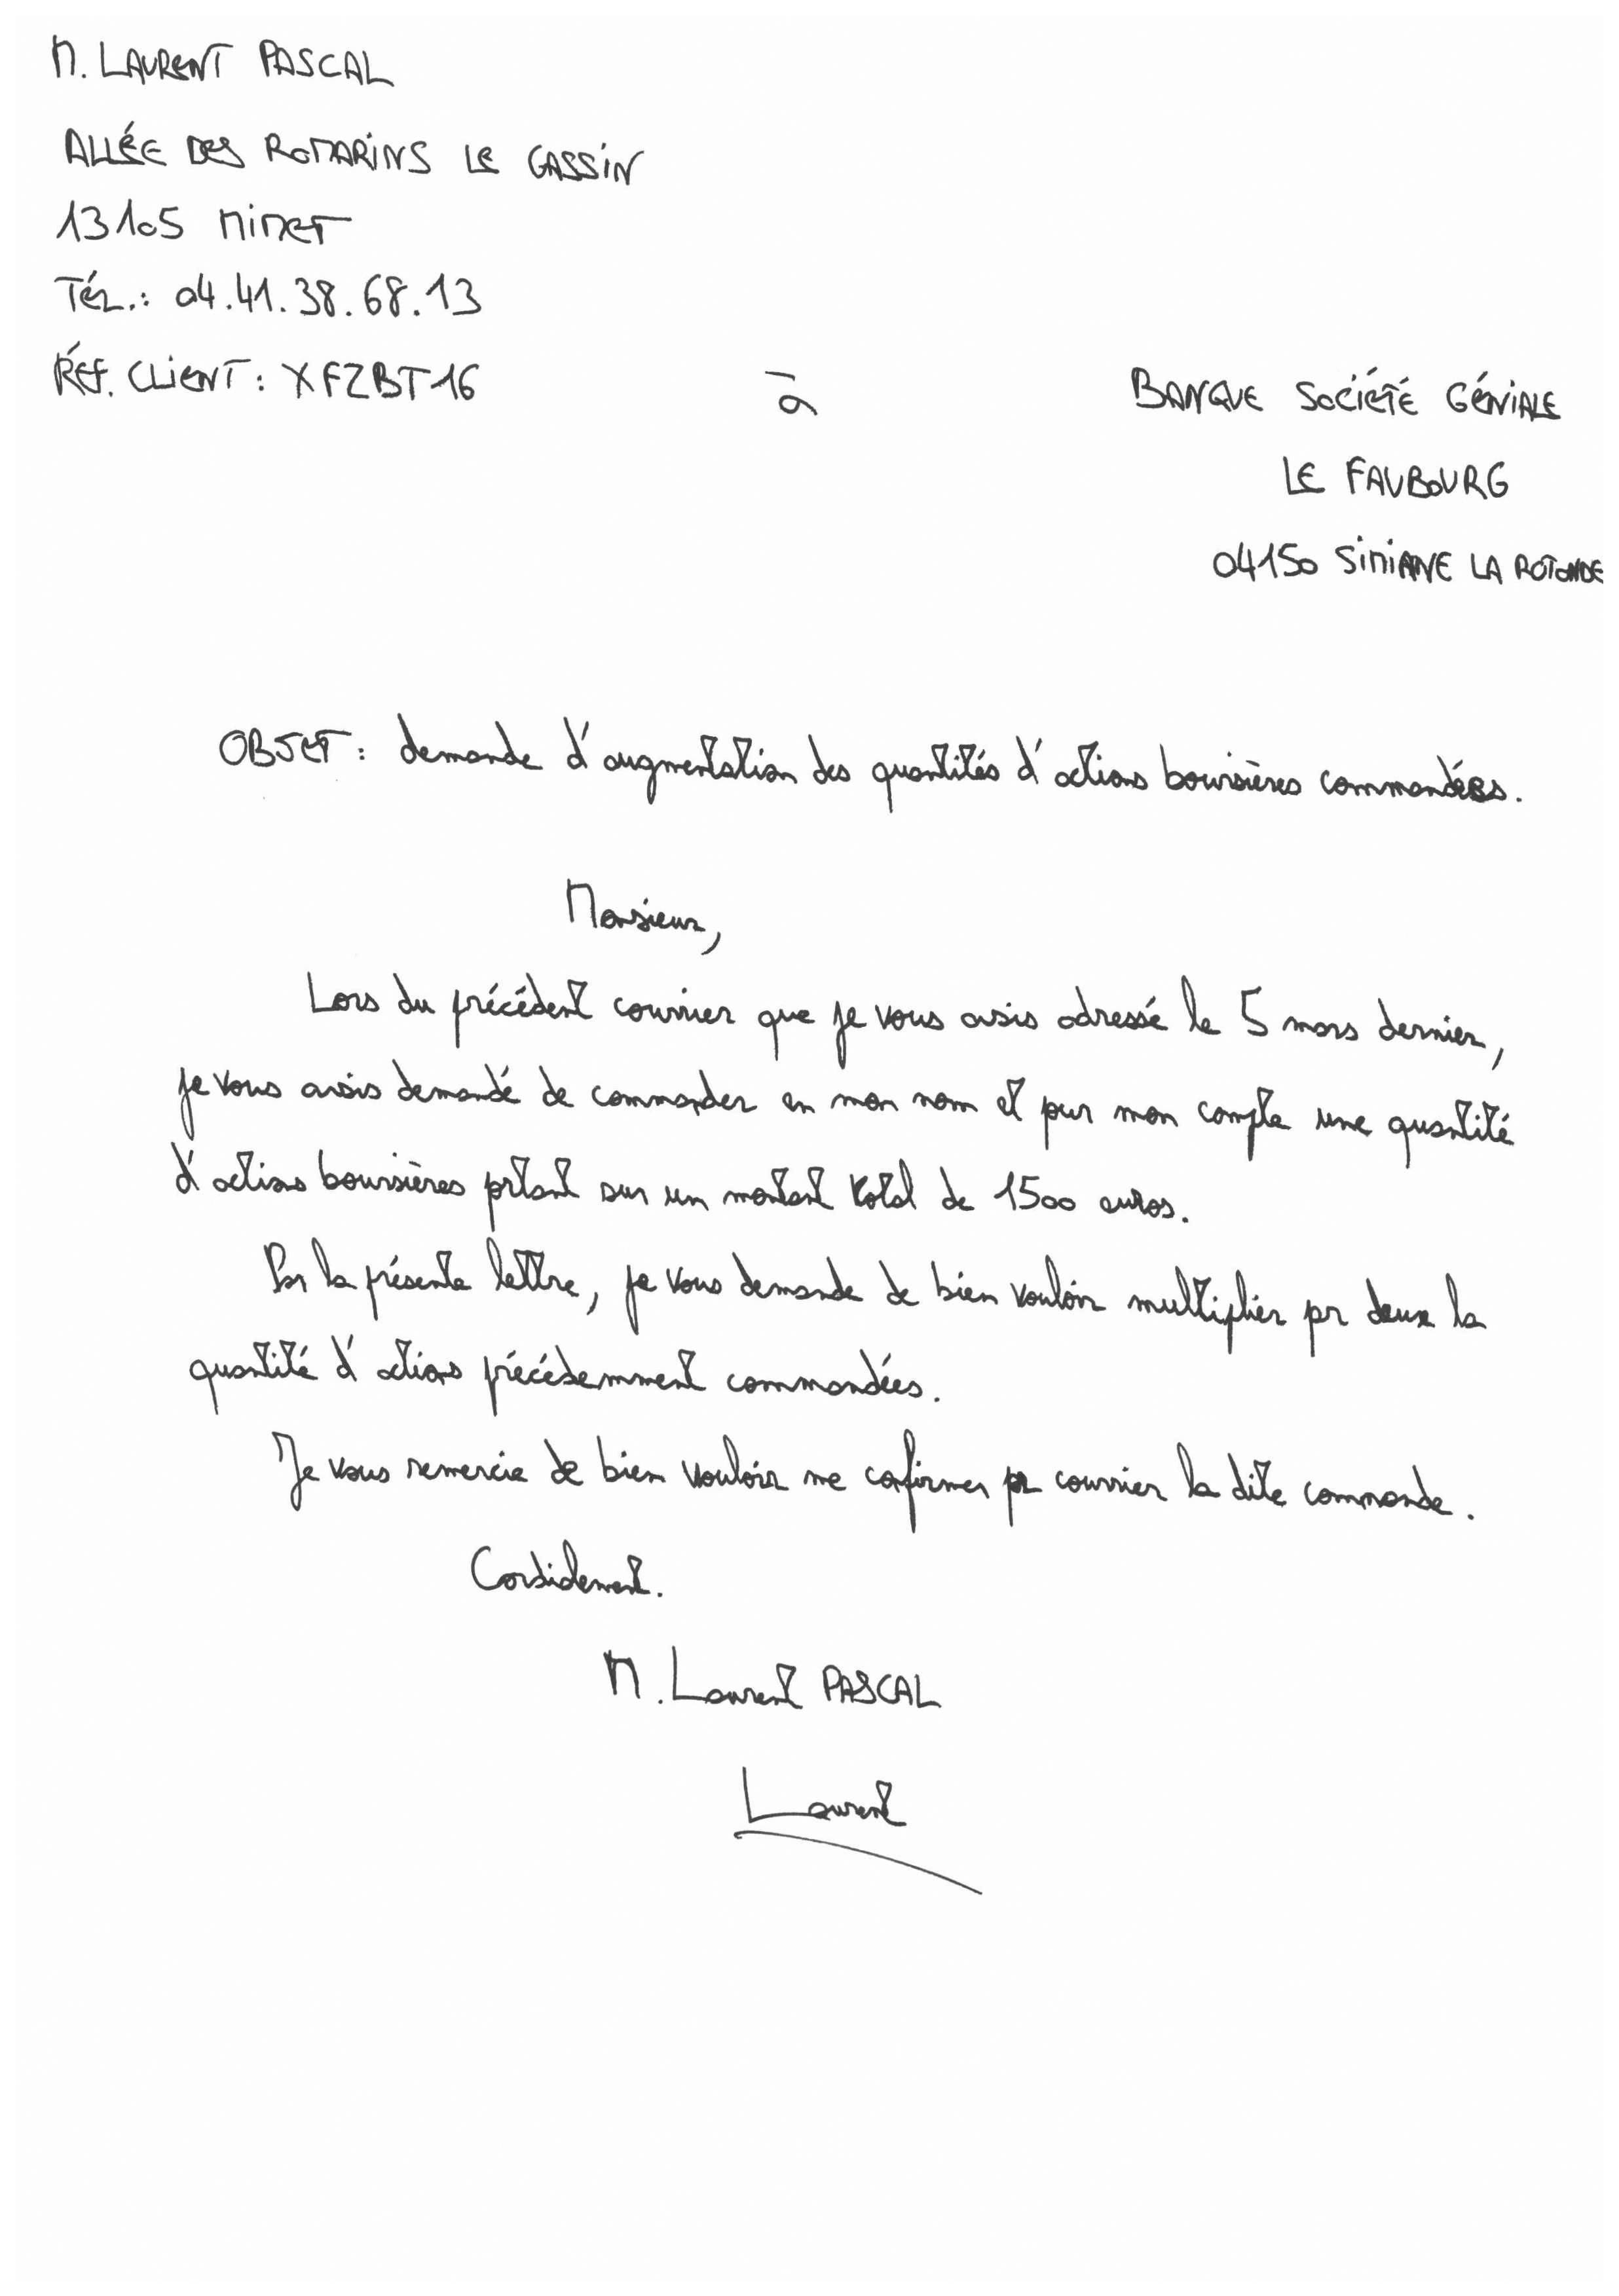 M. LAURENT PASCAL
ALLÉE DES ROMARINS LE GASSIN
13105 MIMET
TÉL.: 04.41.38.68.13
RÉF. CLIENT: XFZBT16
à
BANQUE SOCIÉTÉ GÉNIALE
LE FAUBOURG
04150 SIMIANE LA ROTONDE
OBJET: demande d'augmentation des quantités d'actions boursières commandées.
Monsieur,
Lors du précédent courrier que je vous avais adressé le 5 mars dernier,
je vous avais demandé de commander en mon nom et pour mon compte une quantité
d'actions boursières portant sur un montant total de 1500 euros.
Par la présente lettre, je vous demande de bien vouloir multiplier par deux la
quantité d'actions précédemment commandées.
Je vous remercie de bien vouloir me confirmer par courrier la dite commande.
Cordialement.
M. Laurent PASCAL
Laurent